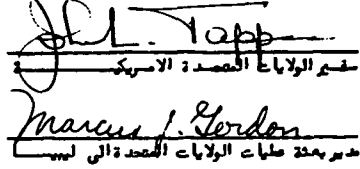 John L. Tappin
سفير الولايات المتحدة الامريكيــة
Marcus J. Gordon
مدير بعثة عمليات الولايات المتحدة الى ليبيــا